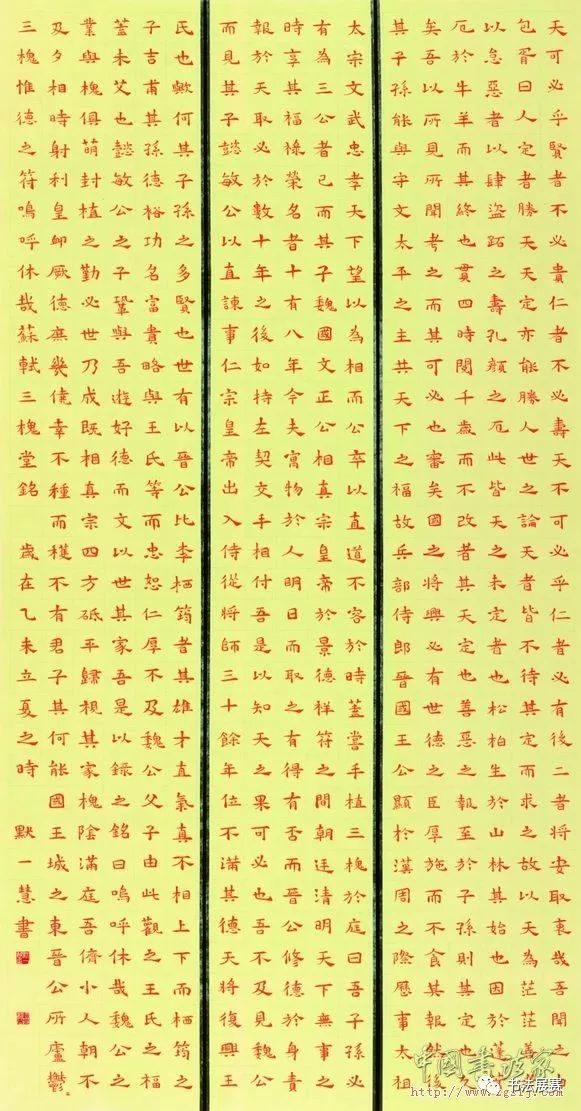 天可必乎賢者不必貴仁者不必壽天不可必乎仁者必有後二者將安取衷哉吾聞之申
包胥曰人定者勝天天定亦能勝人世之論天者皆不待其定而求之故以天為茫茫善者
以怠惡者以肆盜跖之壽孔顏之厄此皆天之未定者也松柏生於山林其始也困於蓬蒿
厄於牛羊而其終也貫四時閱千歲而不改者其天定也善惡之報至於子孫則其定也久
矣吾以所見所聞考之而其可必也審矣國之將興必有世德之臣厚施而不食其報然後
其子孫能與守文太平之主共天下之福故兵部侍郎晉國王公顯於漢周之際歷事太祖
太宗文武忠孝天下望以為相而公卒以直道不容於時蓋嘗手植三槐於庭曰吾子孫必
有為三公者已而其子魏國文正公相真宗皇帝於景德祥符之間朝廷清明天下無事之
時享其福祿榮名者十有八年今夫寓物於人明日而取之有得有否而晉公修德於身責
報於天取必於數十年之後如持左契交手相付吾是以知天之果可必也吾不及見魏公
而見其子懿敏公以直諫事仁宗皇帝出入侍從將師三十餘年位不滿其德天將復興王
氏也歟何其子孫之多賢也世有以晉公比李栖筠者其雄才直氣真不相上下而栖筠之
子吉甫其孫德裕功名富貴略與王氏等而忠恕仁厚不及魏公父子由此觀之王氏之福
蓋未艾也懿敏公之子鞏與吾遊好德而文以世其家吾是以錄之銘曰嗚呼休哉魏公之
業與槐俱萌封植之勤必世乃成既相真宗四方砥平歸視其家槐陰滿庭吾儕小人朝不
及夕相時射利皇卹厥德庶幾僥幸不種而穫不有君子其何能國王城之東晉公所廬鬱〻
三槐惟德之符嗚呼休哉蘇軾三槐堂銘 歲在乙未立夏之時 默一慧書
中國書法家
www.zgsfj.com
书法展赛